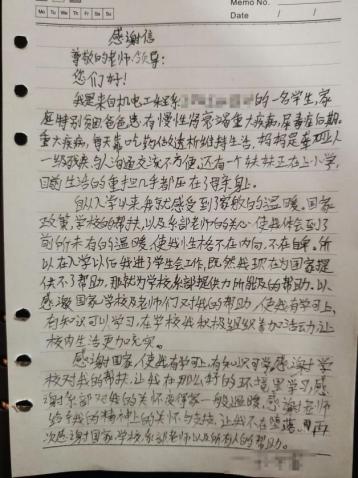 Memo No.
Mo Tu We Th Fr Sa Su
Date / /
感谢信
尊敬的老师、领导：
您们好！
我是来自机电工程系 的一名学生，家
庭特别贫困爸爸患有慢性肾衰竭重大疾病，尿毒症后期。
重大疾病，每天靠吃药和透析维持生活，妈妈是聋哑人
一级残疾与人沟通交流不方便，还有个妹妹正在上小学，
目前生活的重担几乎都压在了母亲身上。
自从入学以来我就感受到了深敬的温暖。国家
政策，学校的帮扶，以及系部老师的关心使我体会到了
前所未有的温暖，使我性格不在内向，不在自卑。所
以在入学以后我进了学生会工作，既然我现在为国家提
供不了帮助，那就为学校系部提供力所能及的帮助。以
感谢国家学校及老师们对我的帮助，使我有学可上，
有知识可以学习，在学校我积极组织参加活动，让
校内生活更加充实。
感谢国家，使我有学可上，有知识可学，感谢学
校对我的帮扶，让我在那么好的环境里学习，感
谢系部对我的关怀像家一般温暖，感谢老师
给予我的精神上的关怀与支持，让我不在堕落。再
次感谢国家，学校，系部老师以及所有人的帮助。